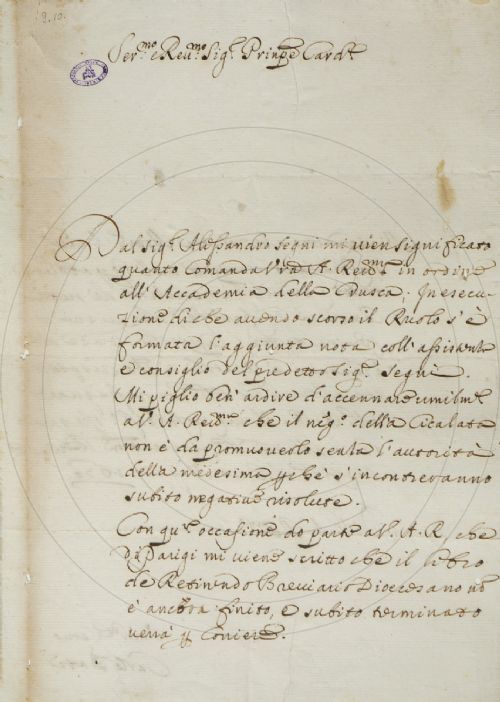 9. 10.
Ser.mo e Reu.mo Sig.r Prinpe Card.le
Dal Sig.r Alessandro Segni mi vien significato
quanto Comanda V'ra A. Reu.ma in ordine
all' Accademia della Crusca; In esecu-
zione di che auendo scorso il Ruolo s'è
formata l'aggiunta nota coll' assistenza
e consiglio del predetto Sig.r Segni.
Mi piglio ben' ardire d'accennare umilm.te
a V. A. Reu.ma che il neg.o della Cicalata
non è da promuouerlo senza l'autorità
della medesima p che s'incontreranno
subito negatiue risolute.
Con qu.ta occasione do parte a V. A. R. che
Di Parigi mi viene scritto che il libro
de Retinendo Breuiario Diocesano nō
è ancora finito, e subito terminato
verrà p Coriere.